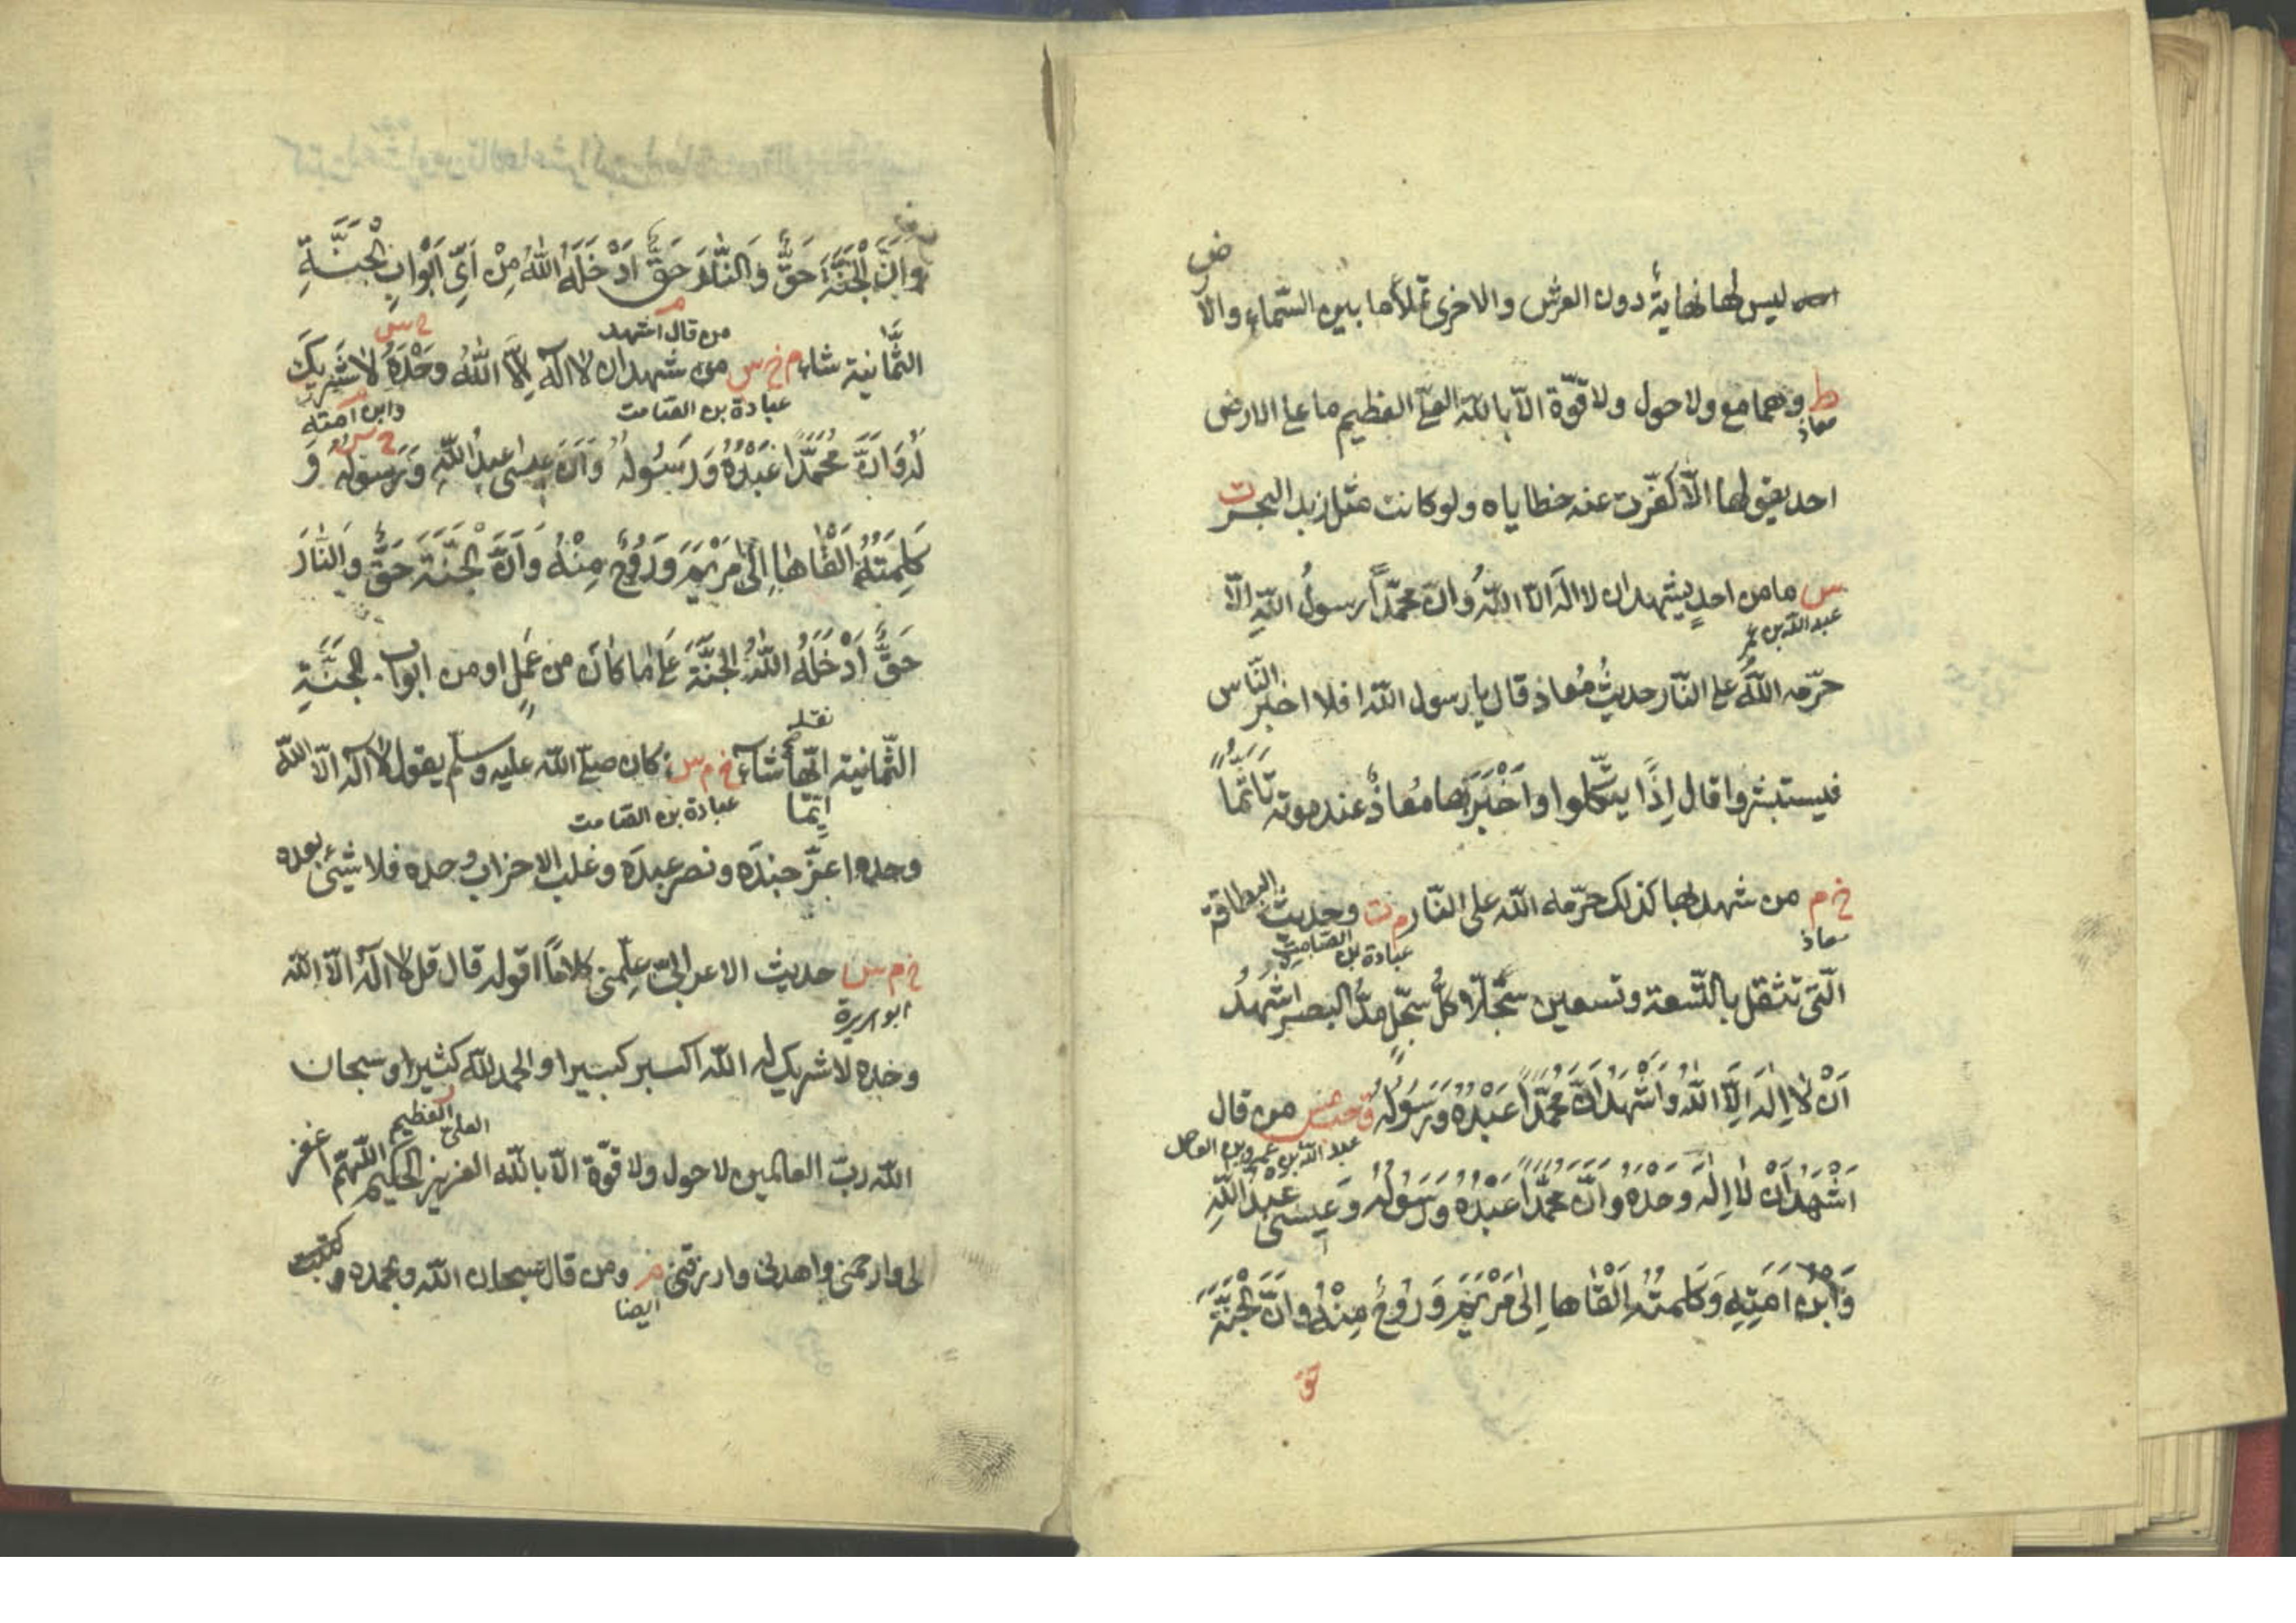 ليس لها نهاية دون العرش والاخرى تملأ ما بين السّماء والا
رض
ط وهما مع ولا حول ولا قوّة الّا بالله العليّ العظيم ما على الارض
معاذ
احد يقولها الّا كفّرت عنه خطاياه ولو كانت مثل زبد البحر ت
س ما من احدٍ يشهد ان لا اله الّا اللهُ وانّ محمّداً رسولُ اللهِ الّا
عبد الله بن عمر
حرّمه اللهُ على النّار حديثُ مُعاذ قال يا رسول الله افلا اخبر النّاس
فيستبشروا قال اِذًا يتّكلوا واَخْبَرَ بها مُعاذٌ عند موته تَاَثُّمًا
خ م من شهد بها كذلك حرّمه الله على النّار م ت وحديث البطاقة
معاذ عبادة بن الصّامت
الّتى تثقل بالتّسعة وتسعين سجّلّا كلُّ سجّلٍ مدُّ البصر اشهدُ
اَنْ لا اِلٰهَ اِلَّا اللهُ وَاَشْهَدُ اَنَّ مُحَمَّدًا عَبْدُهُ وَرَسُولُهُ ق حب مس من قال
عبد الله بن عمرو بن العاص
اَشْهَدُ اَنْ لا اِلٰهَ وَحْدَهُ وَاَنَّ مُحَمَّدًا عَبْدُهُ وَرَسُولُهُ وَعِيسٰى عَبْدُ اللهِ
وَابْنُ اَمَتِهِ وَكَلِمَتُهُ اَلْقَاهَا اِلٰى مَرْيَمَ وَرُوحٌ مِنْهُ وَاَنَّ الْجَنَّةَ
وَاَنَّ الْجَنَّةَ حَقٌّ وَالنَّارَ حَقٌّ اَدْخَلَهُ اللهُ مِنْ اَيِّ اَبْوَابِ الْجَنَّةِ
من قال اشهد
الثَّمانية شاء م خ س من شهد ان لا اله اِلَّا اللهُ وَحْدَهُ لا شَرِيكَ
عبادة بن الصّامت وابن امته
لَهُ وَاَنَّ مُحَمَّدًا عَبْدُهُ وَرَسُولُهُ وَاَنَّ عيسى عبدُ اللهِ وَرَسُولُهُ وَ
كَلِمَتُهُ اَلْقَاهَا اِلٰى مَرْيَمَ وَرُوحٌ مِنْهُ وَاَنَّ الْجَنَّةَ حَقٌّ وَالنَّارَ
حَقٌّ اَدْخَلَهُ اللهُ الْجَنَّةَ عَلٰى ما كانَ من عَمَلٍ او من ابواب الْجَنَّةِ
الثّمانية ايّها شاء خ م س كان صلّى الله عليه وسلّم يقول لا اله الّا الله
عبادة بن الصّامت
وحده اعزّ جنده ونصر عبده وغلب الاحزاب وحده فلا شئ بعده
خ م س حديث الاعرابيّ علّمنى كلاماً اقوله قال قل لا اله الّا الله
ابو هريرة
وحده لا شريك له الله اكبر كبيرا والحمد لله كثيرا وسبحان
العليّ العظيم
الله ربّ العالمين لا حول ولا قوّة الّا بالله العزيز الحكيم اللهمّ اغفر
لى وارحمنى واهدنى وارزقنى م ومن قال سبحان الله وبحمده كتبت
ايضا